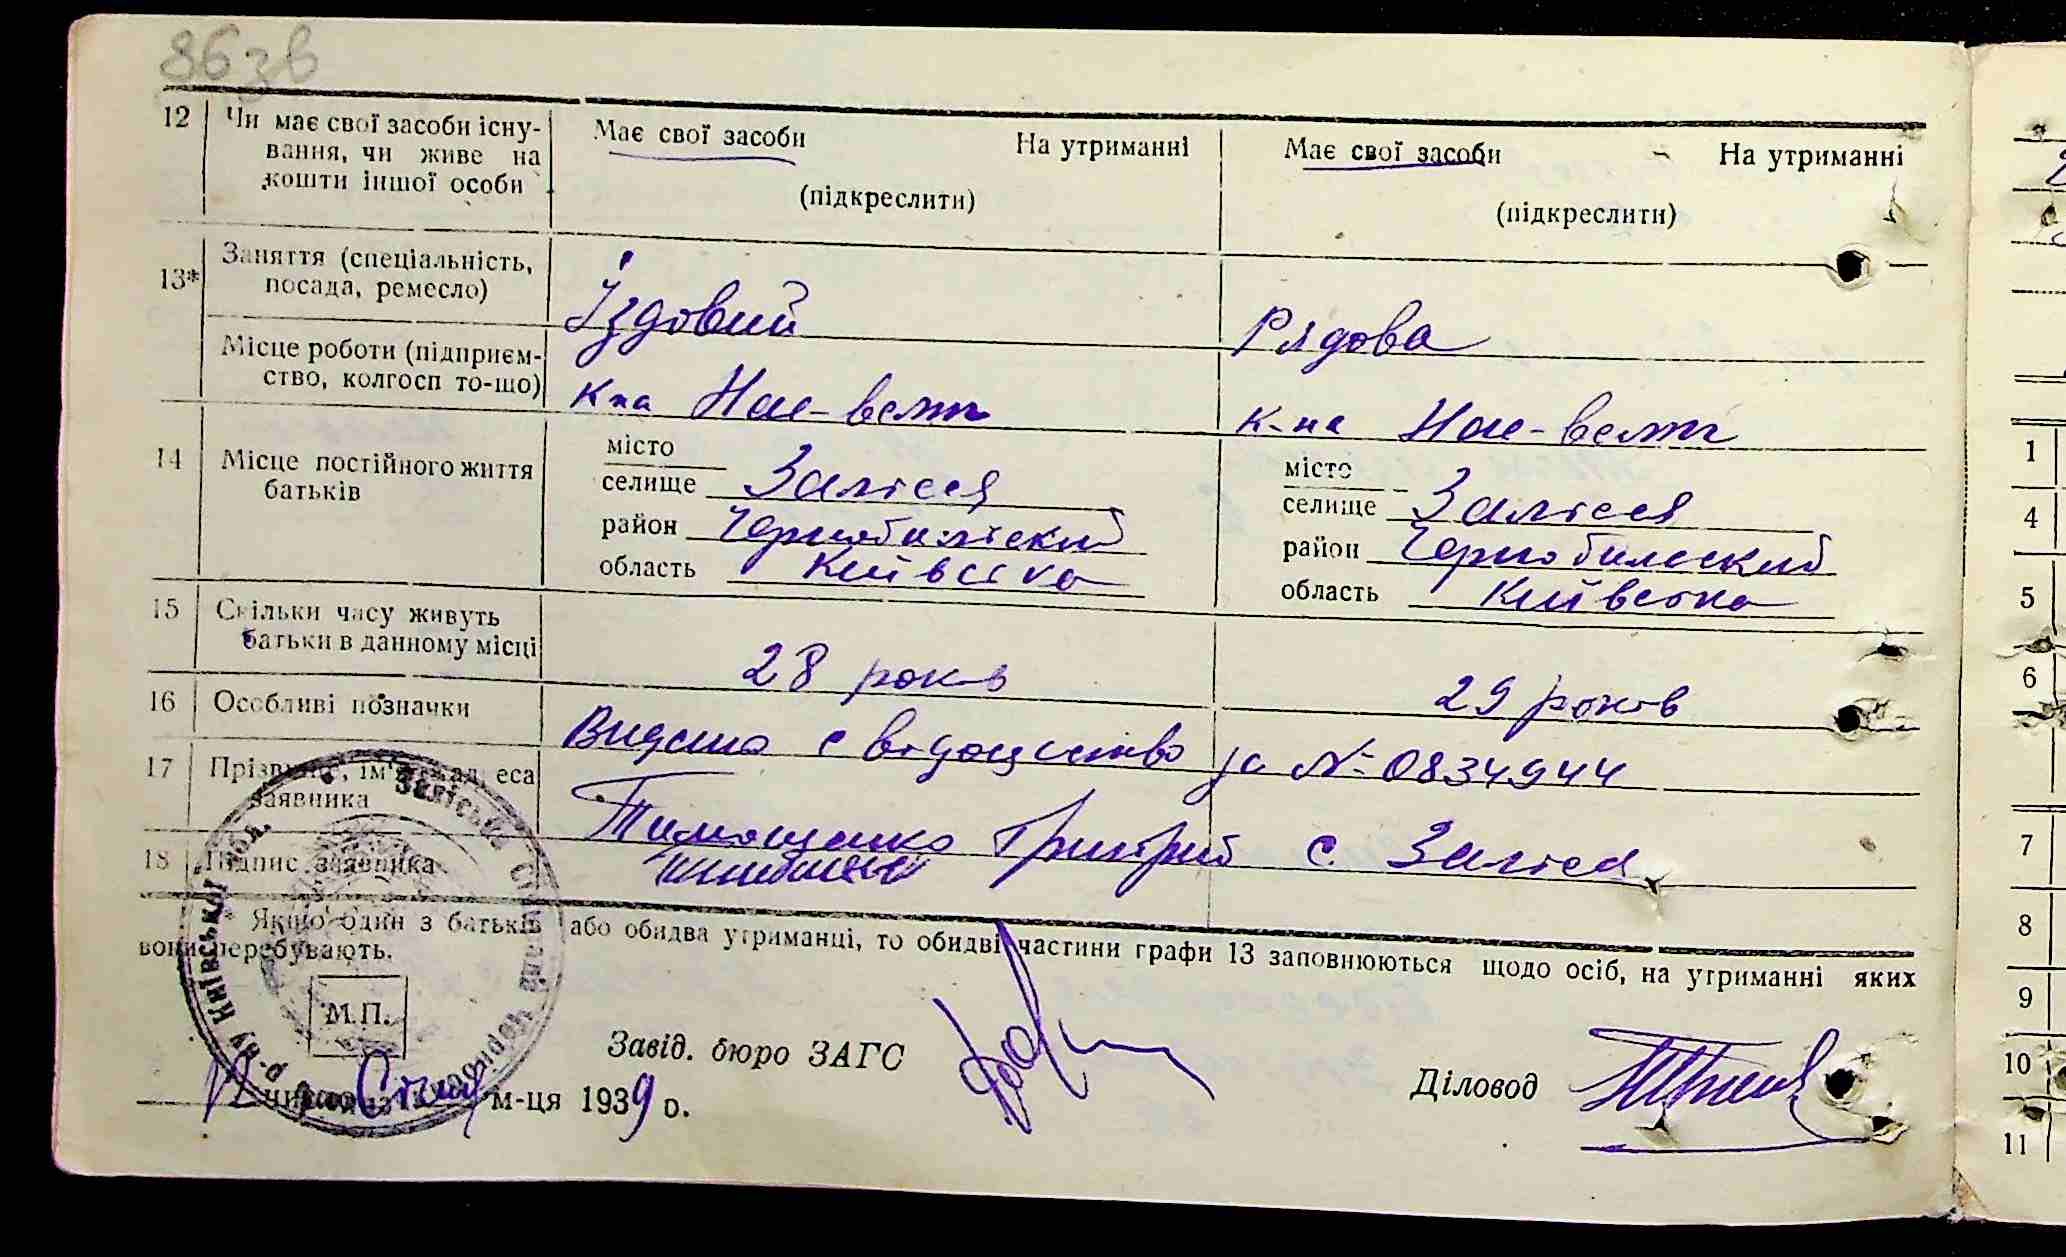 863в
12 Чи має свої засоби існу- Має свої засоби На утриманні Має свої засоби На утриманні
вання, чи живе на
кошти іншої особи (підкреслити) (підкреслити)
13* Заняття (спеціальність,
посада, ремесло) Їздовий Рядова
Місце роботи (підприєм-
ство, колгосп то-що) К-па К-па
14 Місце постійного життя
батьків
місто місто
селище Залісся селище Залісся
район Чорнобильский район Чорнобильский
область Київсіка область Київська
15 Скільки часу живуть
батьки в данному місці 28 років 29 років
16 Особливі позначки Видано свидоцтво за № 0834944
17 Прізвище, ім'я та адреса
заявника Тимошенко Григрий с. Заліся
18 Підпис заявника
Якщо один з батьків або обидва утриманці, то обидві частини графи 13 заповнюються щодо осіб, на утриманні яких
вони перебувають.
М.П.
Завід. бюро ЗАГС
Діловод
числа Січня м-ця 1939 о.
Заліська Сільська Рада Чорнобил. р-ну Київської обл.
1
4
5
6
7
8
9
10
11